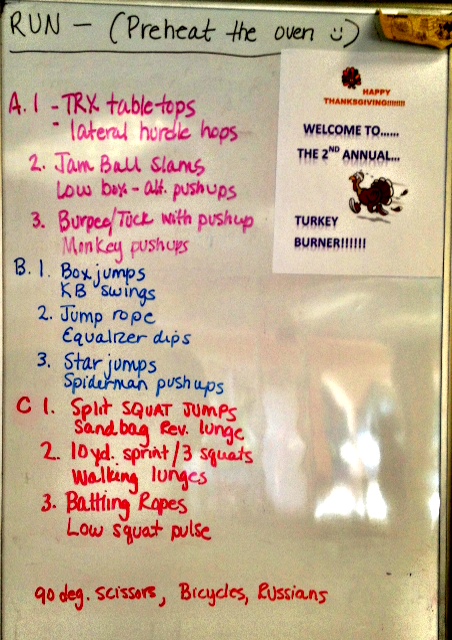 RUN - (Preheat the oven ☺)
A. 1 - TRX table-tops
- lateral hurdle hops
2. Jam Ball Slams
Low box - alt. pushups
3. Burpee/Tuck with pushup
Monkey pushups
B. 1. Box jumps
KB swings
2. Jump rope
Equalizer dips
3. Star jumps
Spiderman pushups
C 1. Split SQUAT JUMPS
Sandbag Rev. lunge
2. 10yd. sprint/3 squats
Walking lunges
3. Battling Ropes
Low squat pulse
90 deg. scissors, Bicycles, Russians
HAPPY
THANKSGIVING!!!!!!!!
WELCOME TO......
THE 2ND ANNUAL...
TURKEY
BURNER!!!!!!